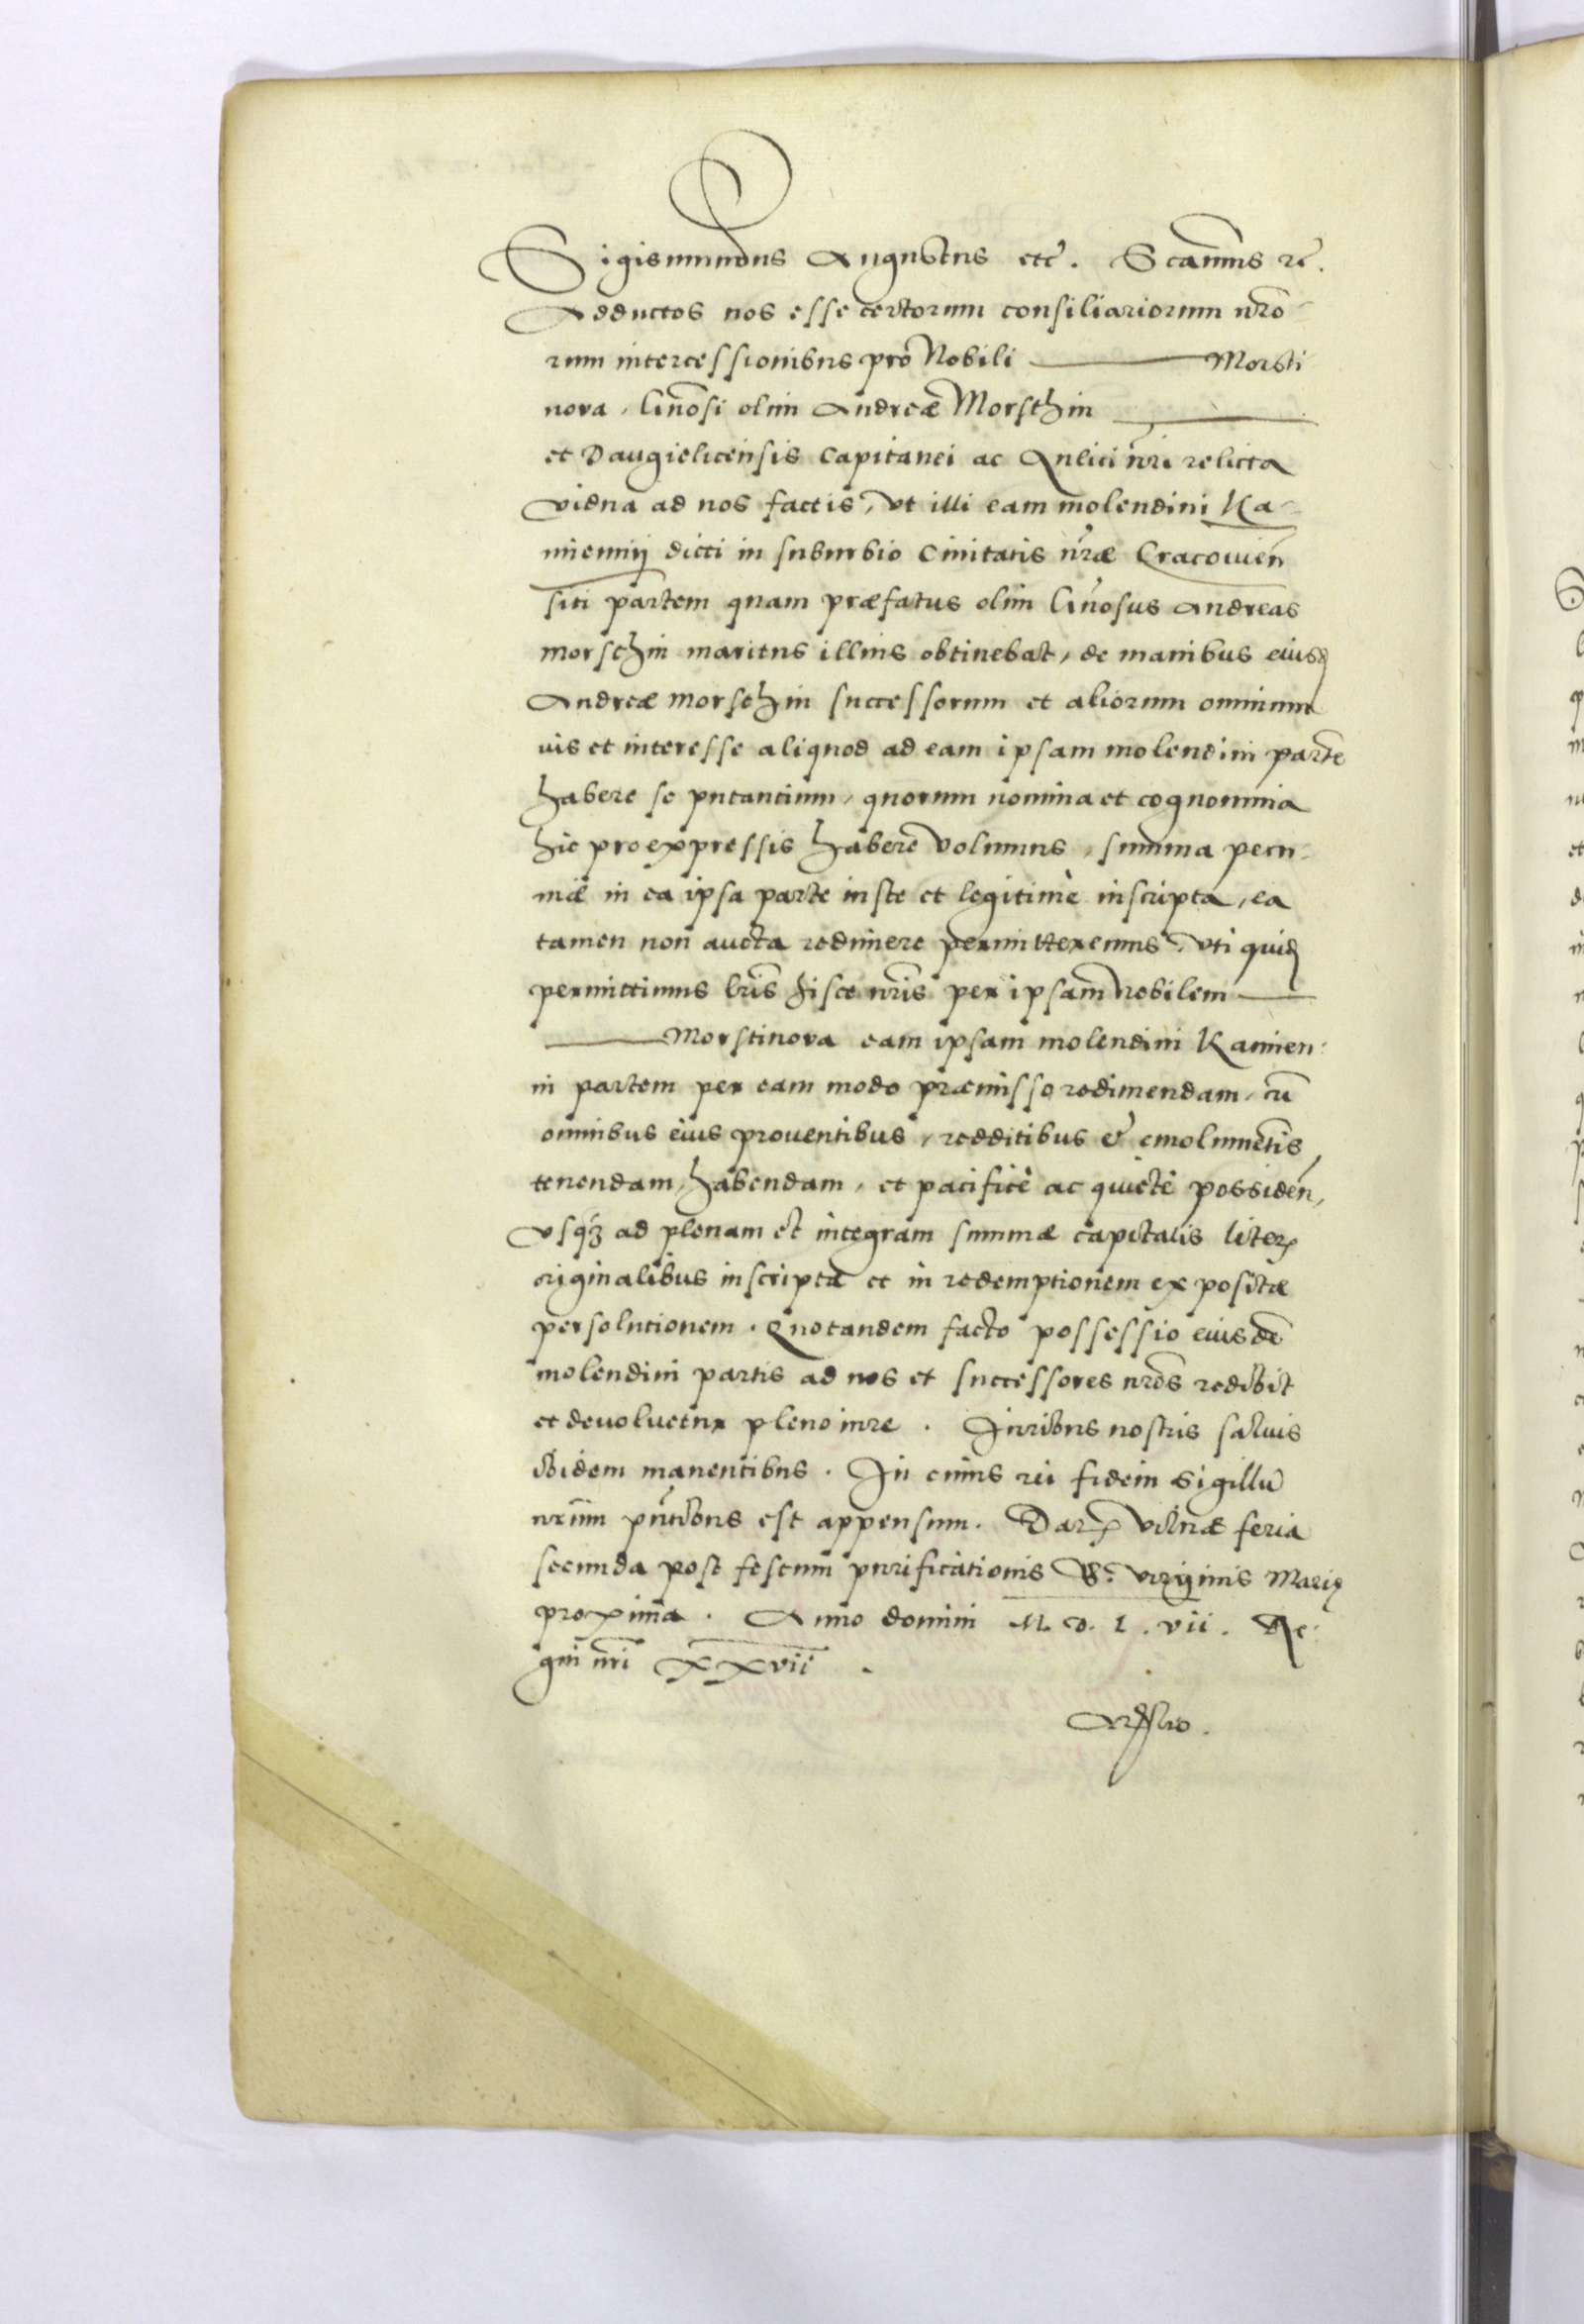 Sigismundus Augustus etc̄. S cānus rc̄.
Adductos nos esse certorum consiliariorum nr̄o-
rum intercessionibus pro Nobili ——— Morsti
nova, Gn̄osi olim Andreæ Morschin ———
et Daugielicensis Capitanei ac Aulici nr̄i relicta
vidua ad nos factis, vt illi eam molendini Ka-
miennij dicti in suburbio Ciuitatis nr̄æ Cracouien̄
siti partem quam præfatus olim Gn̄osus Andreas
morschin maritus illius obtinebat, de manibus eiusd
Andreæ morschin successorum et aliorum omnium
ius et interesse aliquod ad eam ipsam molendini partē
habere se putantium, quorum nomina et cognomina
hic pro expressis habere volumus, summa pecu-
niæ in ea ipsa parte iuste et legitimè inscripta, ea
tamen non aucta redimere permitteremus, vti quid
permittimus lr̄is hisce nr̄is per ipsam Nobilem ———
——— Morstinova eam ipsam molendini Kamien-
ni partem per eam modo præmisso redimendam, cū
omnibus eius prouentibus, redditibus & emolumētis
tenendam, habendam, et pacificè ac quietè possiden̄,
vsqꝫ ad plenam et integram summæ capitalis liter
originalibus inscriptæ et in redemptionem expositæ
persolutionem. Quo tandem facto possessio eiusdē
molendini partis ad nos et successores nr̄os redibit
et deuoluetur pleno iure. Iuribus nostris saluis
ibidem manentibus. In cuius rei fidem sigillū
nr̄um pn̄tibus est appensum. Dat Vilnæ feria
secunda post festum purificationis B. virginis Marię
proxima. Anno domini M. D. L. vii. Re-
gni nr̄i XXvii.